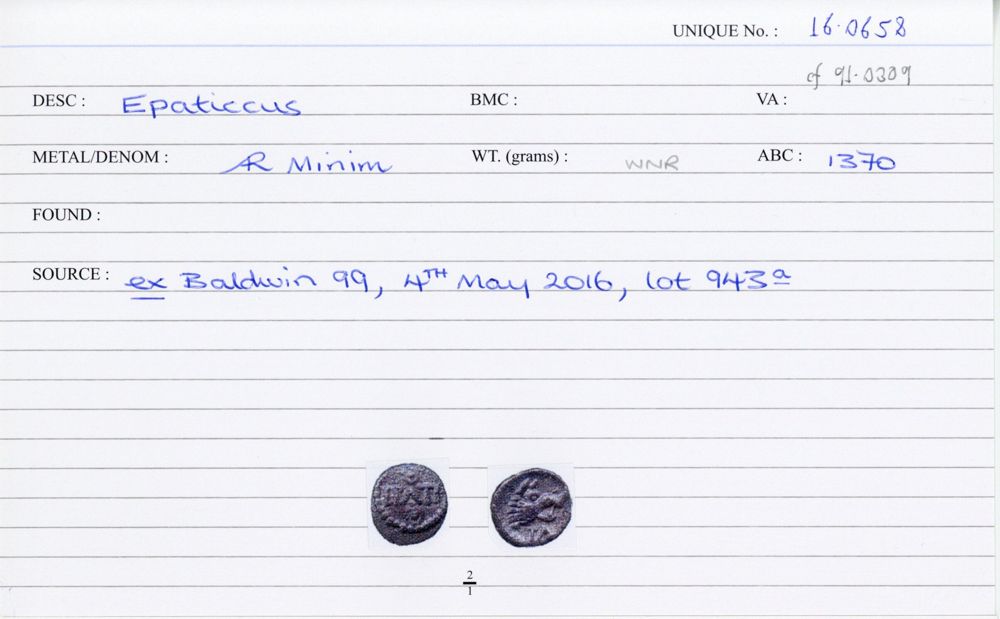 UNIQUE No. : 16·0658
cf 91·0309
DESC : Epaticcus BMC : VA :
METAL/DENOM : AR Minim WT. (grams) : WNR ABC : 1370
FOUND :
SOURCE : ex Baldwin 99, 4TH May 2016, lot 943a
2
1